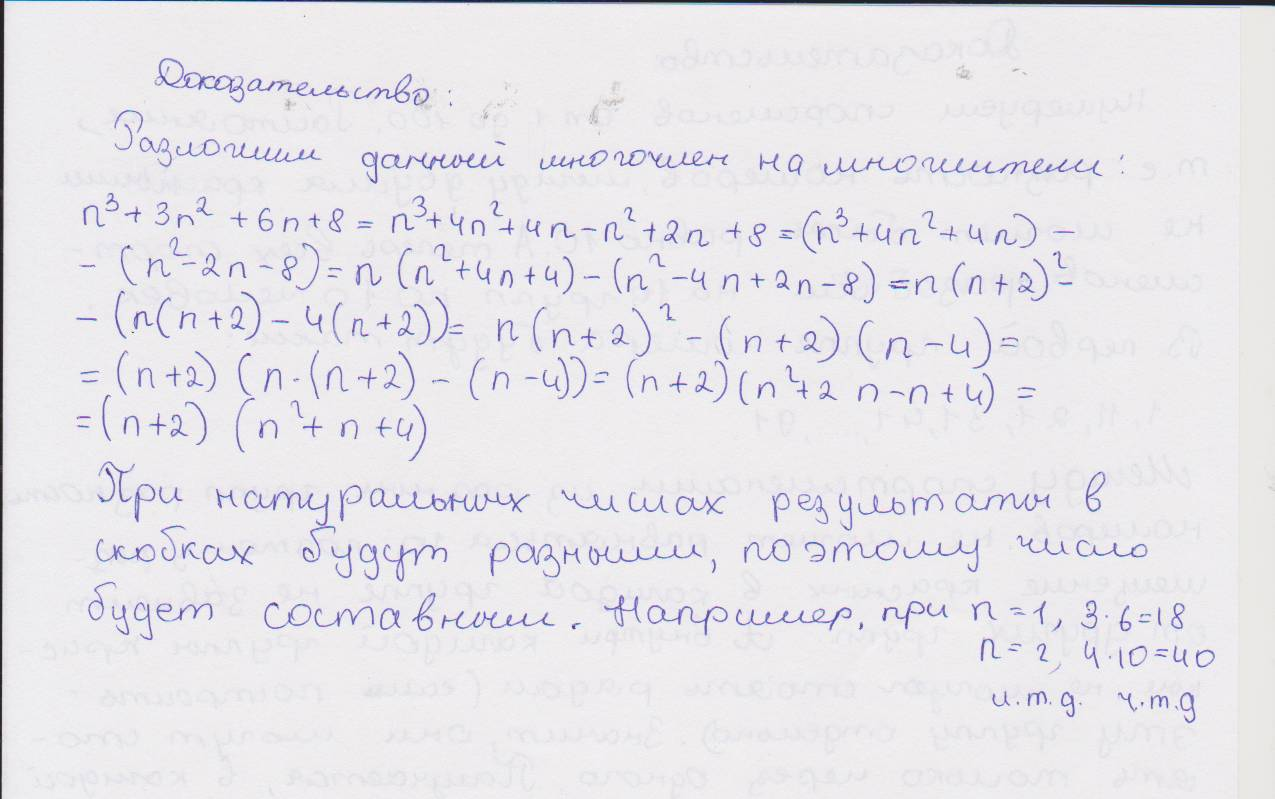 Доказательство:
Разложим данный многочлен на множители:
n³+3n²+6n+8 = n³+4n²+4n-n²+2n+8=(n³+4n²+4n)-
-(n²-2n-8)=n(n²+4n+4)-(n²-4n+2n-8)=n(n+2)²-
-(n(n+2)-4(n+2))= n(n+2)²-(n+2)(n-4)=
=(n+2)(n·(n+2)-(n-4))=(n+2)(n²+2n-n+4)=
=(n+2)(n²+n+4)
При натуральных числах результаты в
скобках будут разными, поэтому число
будет составным. Например, при n=1, 3·6=18
n=2, 4·10=40
и.т.д. ч.т.д